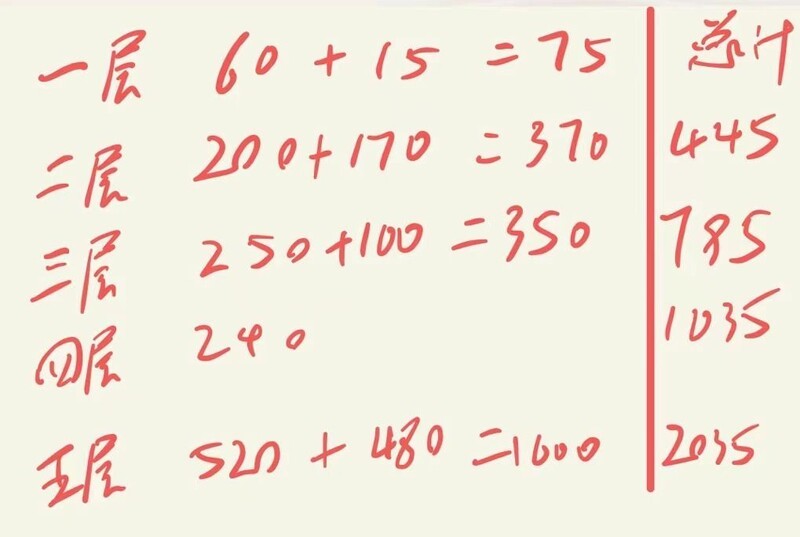 一层 60+15=75 总计
二层 200+170=370 445
三层 250+100=350 785
四层 240 1035
五层 520+480=1000 2035